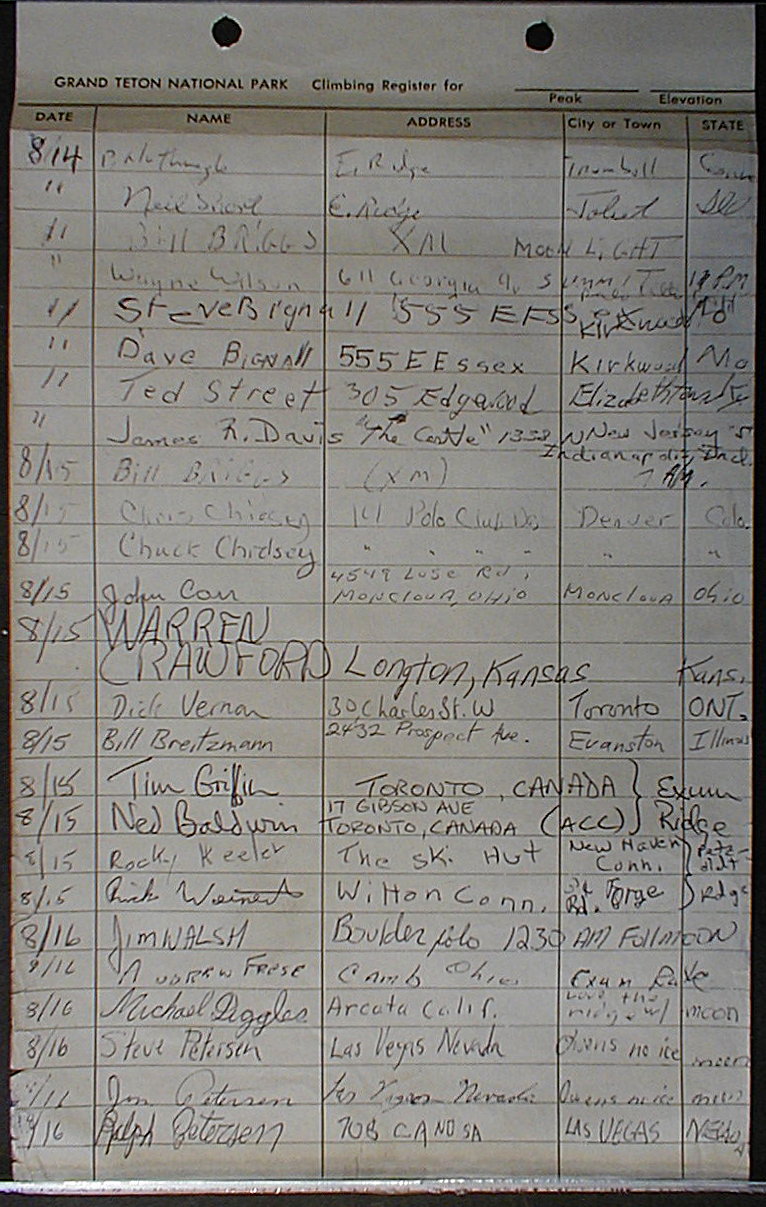 GRAND TETON NATIONAL PARK Climbing Register for
Peak Elevation
DATE NAME ADDRESS City or Town STATE
8/14 E. Ridge Trumbull Conn
" Neil Short E. Ridge Joliet
" Bill BRIGGS XM MOON LIGHT
" Wayne Wilson 611 Georgia Av SUMMIT PM
" Steve Bignall 555 E ESSex Kirkwood Mo
" Dave BIGNAll 555 E Essex Kirkwood Mo
" Ted Street 305 Edgewood Elizabethtown Ky
" James R. Davis "The Castle" 1338 N New Jersey St
Indianapolis, Ind.
8/15 Bill BRIGGS (XM) 7 AM.
8/15 Chris Chidsey 141 Polo Club Denver Colo.
8/15 Chuck Chidsey " " " " " "
8/15 John Carr 4549 LUSE Rd, MONCLOVA, OHIO MONCLOVA Ohio
8/15 WARREN
CRAWFORD Longton, Kansas Kans.
8/15 Dick Vernon 30 Charles St. W Toronto ONT.
8/15 Bill Breitzmann 2432 Prospect Ave. Evanston Illinois
8/15 Tim Griffin TORONTO, CANADA } Exum
8/15 Ned Baldwin 17 GIBSON AVE TORONTO, CANADA (ACC) } Ridge
8/15 Rocky Keeler The Ski Hut New Haven Conn. } Petz-oldt
8/15 Rick Wilton Conn. Forge Rd. } Rdge
8/16 JIM WALSH Boulder Colo 1230 AM Full MOON
8/16 ANDREW FREESE Ohio Exum
8/16 Michael Diggles Arcata Calif. Love the ridge w/ moon
8/16 Steve Petersen Las Vegas Nevada Owens no ice moon
8/16 Jim Petersen Las Vegas Nevada Owens no ice moon
8/16 Ralph Petersen 708 CANOSA LAS VEGAS